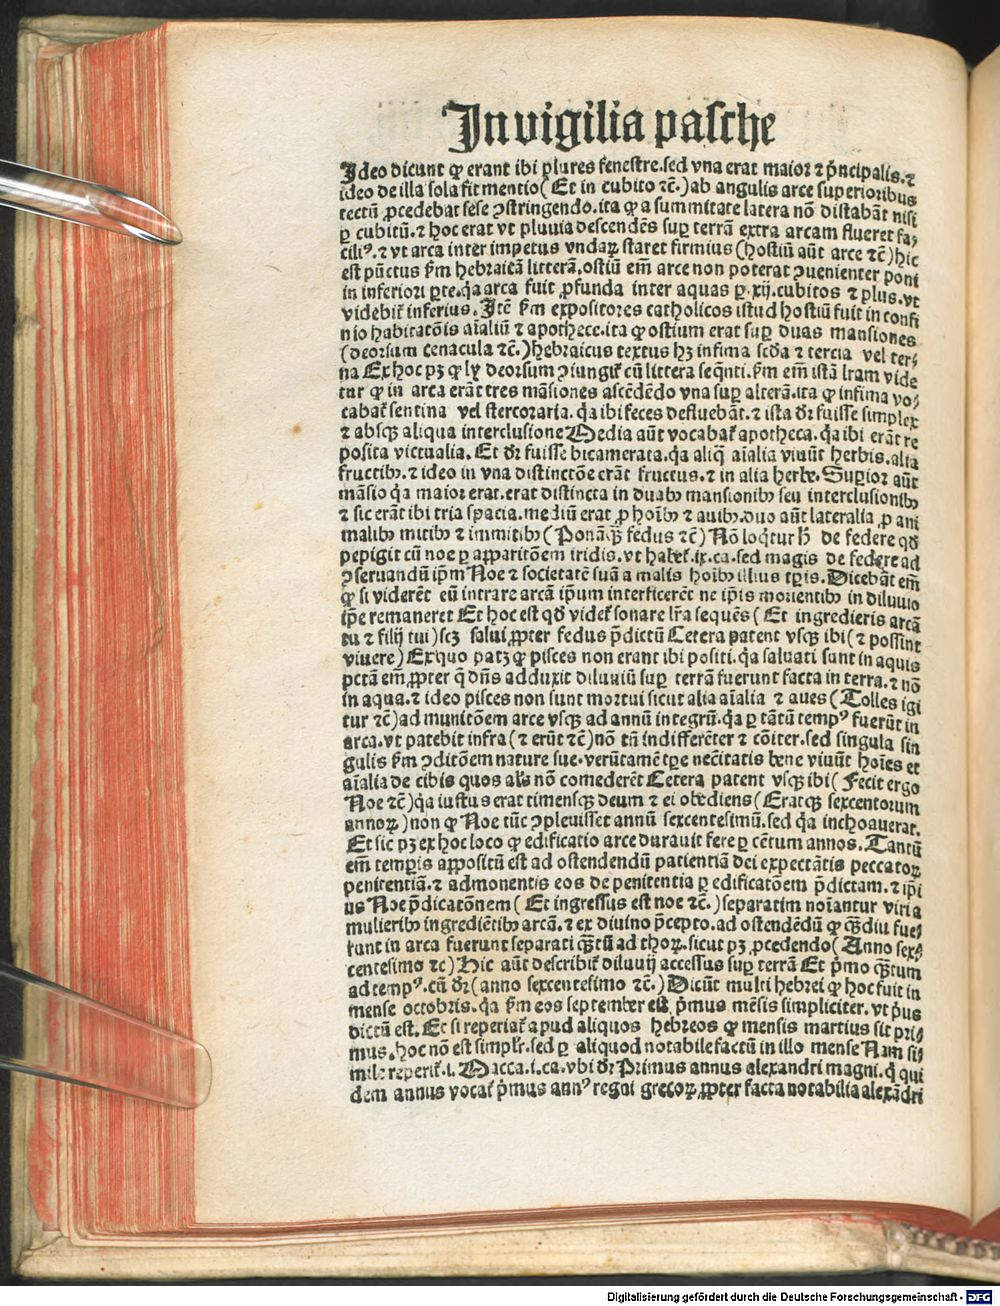 In vigilia pasche
Ideo dicunt ꝙ erant ibi plures fenestre.sed vna erat maior ⁊ p̄ncipalis.⁊
ideo de illa sola fit mentio( Et in cubito ⁊c̄.)ab angulis arce superioribus
tectū ꝓcedebat sese ꝯstringendo.ita ꝙ a summitate latera nō distabāt nisi
ꝑ cubitū.⁊ hoc erat vt pluuia descendēs suꝑ terrā extra arcam flueret fa⸗
ciliꝰ.⁊ vt arca inter impetus vndaꝝ staret firmius (hostiū aūt arce ⁊c̄)hic
est pūctus ẜm hebraicā litterā.ostiū em̄ arce non poterat ꝯuenienter poni
in inferiori ꝑte.q̇a arca fuit ꝓfunda inter aquas ꝑ.xij.cubitos ⁊ plus.vt
videbit̄ inferius.Itē ẜm expositores catholicos istud hostiū fuit in confi
nio habitatōis aīaliū ⁊ apothece.ita ꝙ ostium erat suꝑ duas mansiones
(deorsum cenacula ⁊c̄.)hebraicus textus hꝫ infima scd̄a ⁊ tercia vel ter⸗
na Ex hoc pꝫ ꝙ ly deorsum ꝯiungit̄ cū littera seq̄nti.ẜm em̄ istā lr̄am vide
tur ꝙ in arca erāt tres māsiones ascēdēdo vna suꝑ alterā.ita ꝙ infima vo⸗
cabat̄ sentina vel stercoraria.q̇a ibi feces defluebāt.⁊ ista dr̄ fuisse simplex
⁊ absqꝫ aliqua interclusione Media aūt vocabat̄ apotheca.q̇a ibi erāt re
posita victualia.Et dr̄ fuisse bicamerata.q̇a aliq̄ aīalia viuūt herbis.alia
fructibꝫ.⁊ ideo in vna distinctōe erāt fructus.⁊ in alia herbe.Superior aūt
māsio q̇a maior erat.erat distincta in duabꝫ mansionibꝫ seu interclusionibꝫ
⁊ sic erāt ibi tria spacia.mediū erat ꝓ hoībꝫ ⁊ auibꝫ.duo aūt lateralia ꝓ ani
malibꝫ mitibꝫ ⁊ immitibꝫ(Ponāqꝫ fedus ⁊c̄)Nō loq̇tur h̄ de federe qd̄
pepigit cū noe ꝑ apparitōem iridis.vt habet̄.ix.ca.sed magis de federe ad
ꝯseruandū ip̄m Noe ⁊ societatē suā a malis hoībꝫ illius tꝑis.Dicebāt em̄
ꝙ si viderēt eū intrare arcā ip̄um interficerēt ne ip̄is morientibꝫ in diluuio
ip̄e remaneret Et hoc est qd̄ videt̄ sonare lr̄a sequēs( Et ingredieris arcā
tu ⁊ filij tui)scꝫ salui ꝓpter fedus p̄dictū Cetera patent vsqꝫ ibi(⁊ possint
viuere)Ex quo patꝫ ꝙ pisces non erant ibi positi.q̇a saluati sunt in aquis
pctā em̄ ꝓpter q̄ dn̄s adduxit diluuiū suꝑ terrā fuerunt facta in terra.⁊ nō
in aqua.⁊ ideo pisces non sunt mortui sicut alia aīalia ⁊ aues(Tolles igi
tur ⁊c̄)ad munitōem arce vsqꝫ ad annū integrū.q̇a ꝑ tātū tempꝰ fuerūt in
arca.vt patebit infra(⁊ erūt ⁊c̄)nō tn̄ indifferēter ⁊ cōiter.sed singula sin
gulis ẜm ꝯditōem nature sue.verūtamē tꝑe necītatis bene viuūt hoīes et
aīalia de cibis quos al's nō comederēt Cetera patent vsqꝫ ibi(Fecit ergo
Noe ⁊c̄)q̇a iustus erat timensqꝫ deum ⁊ ei obediens(Eratqꝫ sexcentorum
annoꝝ)non ꝙ Noe tūc ꝯpleuisset annū sexcentesimū.sed q̇a inchoauerat.
Et sic pꝫ ex hoc loco ꝙ edificatio arce durauit fere ꝑ cētum annos.Tantū
em̄ temꝑis appositū est ad ostendendū patientiā dei expectātis peccatoꝝ
penitentiā.⁊ admonentis eos de penitentia ꝑ edificatōem p̄dictam.⁊ ip̄i
us Noe p̄dicatōnem( Et ingressus est noe ⁊c̄.)separatim noīantur viri a
mulieribꝫ ingrediētibꝫ arcā.⁊ ex diuino p̄cepto.ad ostendēdū ꝙ qꝫdiu fue⸗
runt in arca fuerunt separati qꝫtū ad thoꝝ.sicut pꝫ ꝓcedendo(Anno sex⸗
centesimo ⁊c)Hic aūt describit̄ diluuij accessus suꝑ terrā Et p̄mo qꝫtum
ad tempꝰ.cū dr̄(anno sexcentesimo ⁊c̄.)Dicūt multi hebrei ꝙ hoc fuit in
mense octobris.q̇a ẜm eos september est p̄mus mēsis simpliciter.vt p̄us
dictū est.Et si reperiat̄ apud aliquos hebreos ꝙ mensis martius sit pri⸗
mus.hoc nō est simplr̄.sed ꝑ aliquod notabile factū in illo mense Nam si⸗
mile reperit̄.i.Macca.i.ca.vbi dr̄ Primus annus alexandri magni.q̇ qui
dem annus vocat̄ p̄mus annꝰ regni grecoꝝ.ꝓpter facta notabilia alexādri
Digitalisierung gefördert durch die Deutsche Forschungsgemeinschaft - DFG